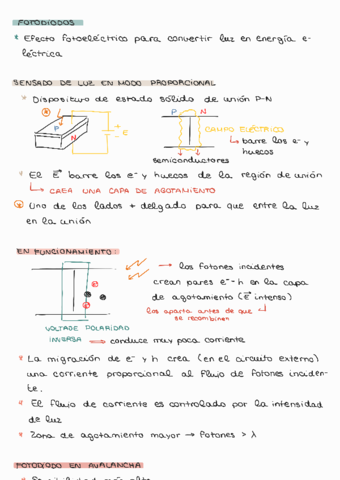 FOTODIODOS
* Efecto fotoeléctrico para convertir luz en energía e-
léctrica
SENSADO DE LUZ EN MODO PROPORCIONAL
* Dispositivo de estado sólido de unión P-N
P N E
P N
CAMPO ELÉCTRICO
↳ barre los e⁻ y
huecos
semiconductores
* El E⃗ barre los e⁻ y huecos de la región de unión
↳ CREA UNA CAPA DE AGOTAMIENTO
* Uno de los lados + delgado para que entre la luz
en la unión
EN FUNCIONAMIENTO:
→ los fotones incidentes
crean pares e⁻-h en la capa
de agotamiento (E⃗ intenso)
los aparta antes de que
se recombinen
VOLTAGE POLARIDAD
INVERSA → conduce muy poca corriente
* La migración de e⁻ y h crea (en el circuito externo)
una corriente proporcional al flujo de fotones inciden-
te.
* El flujo de corriente es controlado por la intensidad
de luz
* Zona de agotamiento mayor → Fotones > λ
FOTODIODO EN AVALANCHA